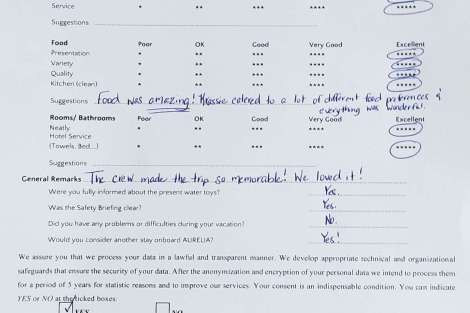 Service * ** *** **** *****
Suggestions
Food Poor OK Good Very Good Excellent
Presentation * ** *** **** *****
Variety * ** *** **** *****
Quality * ** *** **** *****
Kitchen (clean) * ** *** **** *****
Suggestions Food was amazing! catered to a lot of different food preferences &
everything was wonderful.
Rooms/ Bathrooms Poor OK Good Very Good Excellent
Neatly * ** *** **** *****
Hotel Service
(Towels, Bed...) * ** *** **** *****
Suggestions
General Remarks The crew made the trip so memorable! We loved it!
Were you fully informed about the present water toys? Yes.
Was the Safety Briefing clear? Yes.
Did you have any problems or difficulties during your vacation? No.
Would you consider another stay onboard AURELIA? Yes!
We assure you that we process your data in a lawful and transparent manner. We develop appropriate technical and organizational
safeguards that ensure the security of your data. After the anonymization and encryption of your personal data we intend to process them
for a period of 5 years for statistic reasons and to improve our services. Your consent is an indispensable condition. You can indicate
YES or NO at the ticked boxes:
YES NO